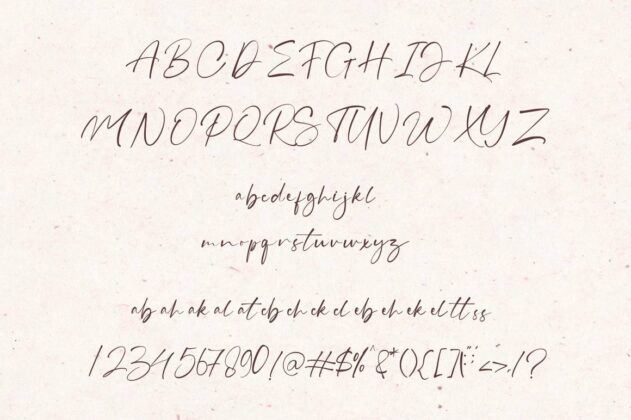 ABCDEFGHIJKL
MNOPQRSTUVWXYZ
abcdefghijkl
mnopqrstuvwxyz
ab ah ak al at cb ch ck cl eb eh ek el tt ss
1234567890!@#$%^&*(){}[]|:;"'<>,./?